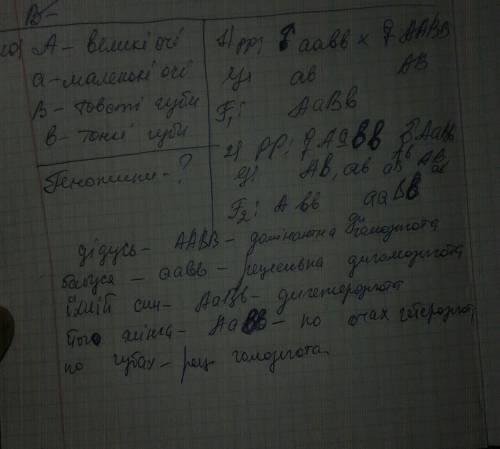 В-
А - великі очі
а - маленькі очі
В - товсті губи
в - тонкі губи
Генотипи - ?
1) РР: аавв x ААВВ
ав АВ
F₁: АаВв
2) РР:
АВ, ав
F₂: А вв
дідусь - ААВВ - домінантна дигомозигота
бабуся - аавв - рецесивна дигомозигота
їхній син - АаВв - дигетерозигота
його жінка - Аавв - по очах гетерозигот,
по губах - рец. гомозигота.